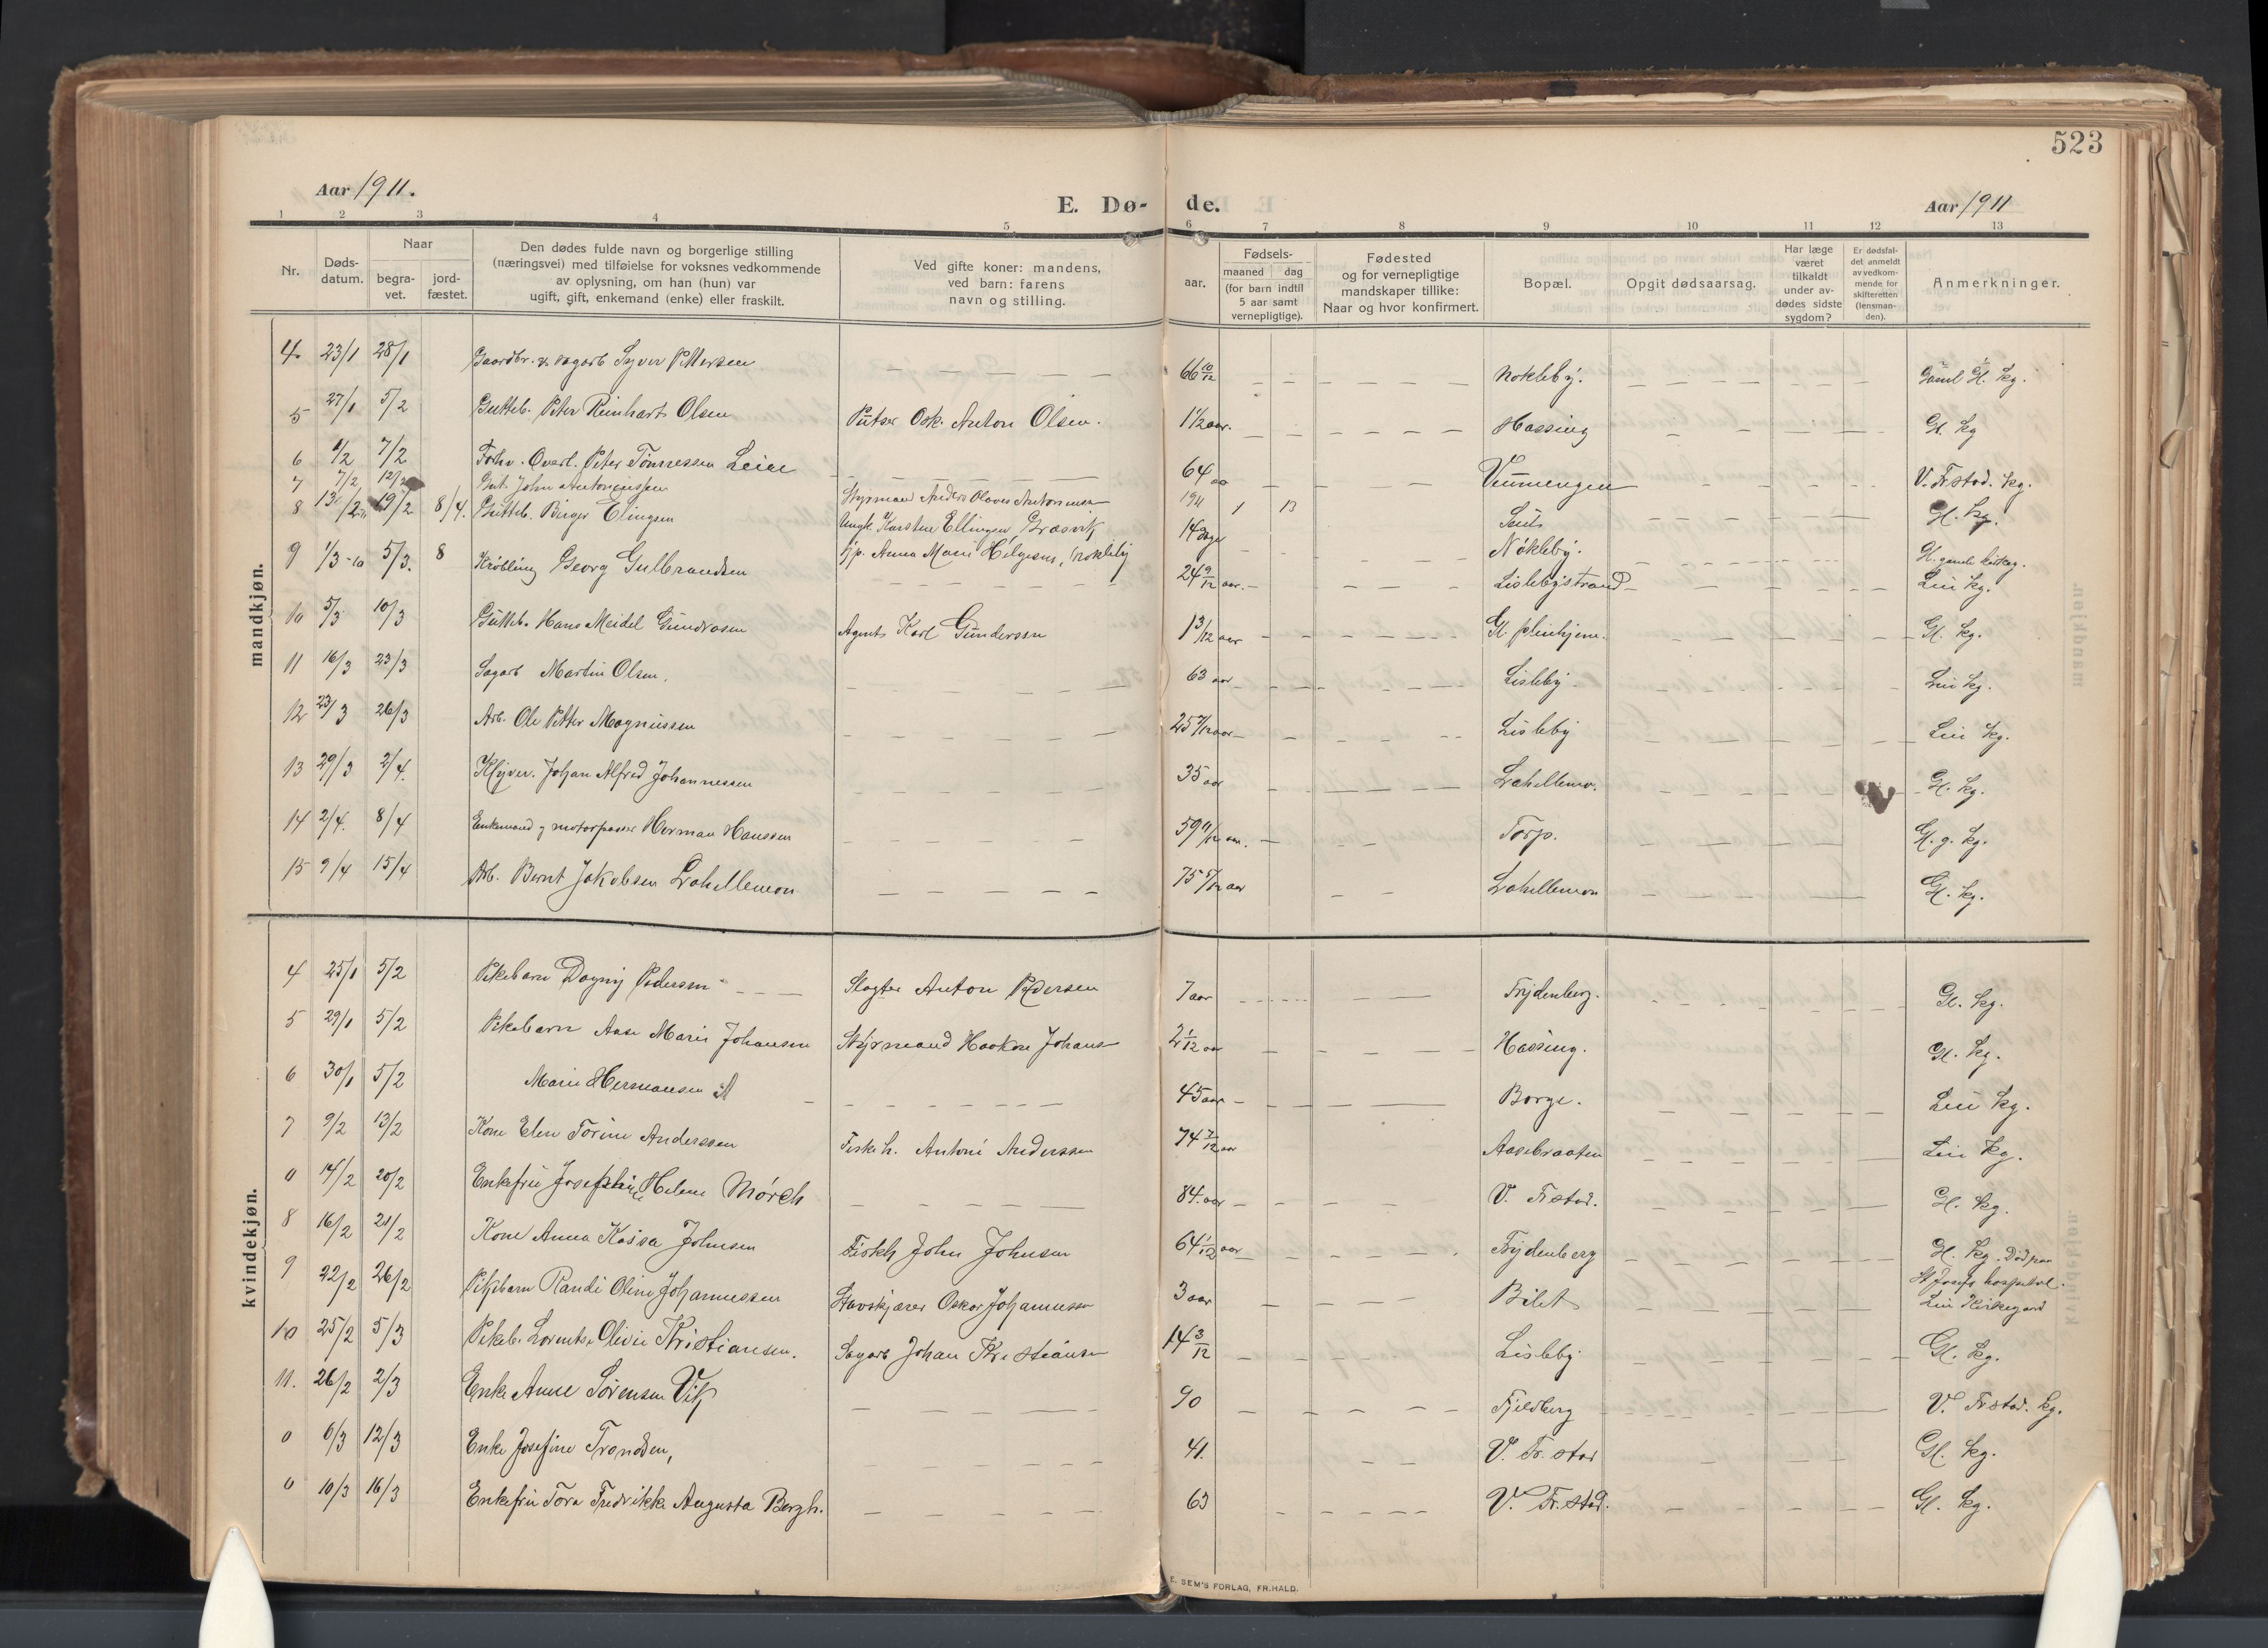 523
Aar 1911.
E. Dø-
de.
Aar 1911
1 2 3 4 5 6 7 8 9 10 11 12 13
Nr.
Døds-
datum.
Naar
begra-
vet.
jord-
fæstet.
Den dødes fulde navn og borgerlige stilling
(næringsvei) med tilføielse for voksnes vedkommende
av oplysning, om han (hun) var
ugift, gift, enkemand (enke) eller fraskilt.
Ved gifte koner: mandens,
ved barn: farens
navn og stilling.
aar.
Fødsels-
maaned dag
(for barn indtil
5 aar samt
vernepligtige).
Fødested
og for vernepligtige
mandskaper tillike:
Naar og hvor konfirmert.
Bopæl.
Opgit dødsaarsag.
Har læge
været
tilkaldt
under av-
dødes sidste
sygdom?
Er dødsfal-
det anmeldt
av vedkom-
mende for
skifteretten
(lensman-
den).
Anmerkninger.
mandkjøn.
4. 23/1 28/1 Gaardbr. & sagarb Syver Pettersen — 66 10/12 — Nokleby. — Gaml Gl. kg.
5 27/1 5/2 Gutteb. Peter Reinhart Olsen Pudser Osk. Anton Olsen. 1 1/2 aar. — Hassing — Gl. kg
6 1/2 7/2 Forhv. Overl. Peter Tønnessen Leire — 64 aa — Vummengen — V. Frstad. kg.
7 7/2 12/2 Gut. John Antoniussen Styrmand Anders Olaves Antoniusen 1911 1 13 Seut — Gl. kg.
8 13/2 19/2 8/4. Gutteb. Birger Elingsen Ungk. Karsten Ellingsen, Græsvik 14 dage — Nøkleby. — Gl. gamle kirkeg.
pp. Anna Marie Helgesen, Nokleby
9 1/3 5/3. 8 Krøbling Georg Gulbrandsen — 24 9/12 aar. — Lislebystrand — Leie kg.
10 5/3 10/3 Gutteb. Hans Meidel Gundrosen Agent Karl Gundersen 1 3/12 aar — Gl. pleiehjem. — Gl. kg.
11 16/3 23/3 Sagarb Martin Olsen. — 63 aar — Lisleby — Leie kg.
12 23/3 26/3 Arb. Ole Petter Magnussen — 25 7/12 aar — Lisleby — Leie kg.
13 29/3 2/4. Kløver. Johan Alfred Johannessen — 35 aar — Lahellemo. — Gl. kg.
14 2/4. 8/4 Enkemand og motorpasser Herman Hanssen — 59 11/12 aar. — Torp. — Gl. g. kg.
15 9/4 15/4 Arb. Bernt Jakobsen Lahellemon — 75 5/12 aar — Lahellemon — Gl. kg.
kvindekjøn.
4 25/1 5/2 Pikebarn Dagny Pedersen — Slagter Anton Pedersen 7 aar — Frydenberg. — Gl. kg.
5 29/1 5/2 Pikebarn Aase Marie Johansen Styrmand Haakon Johans 2 1/12 aar — Hassing. — Gl. kg.
6 30/1 5/2 Marie Hermansen — 45 aar — Borge. — Leie kg.
7 9/2 13/2 Kone Elen Torine Anderssen Fiskeh. Antoni Anderssen 74 7/12 aar Aasebraaten — Leie kg.
0 14/2 20/2 Enkefru Josephine Helene Mørch — 84. aar — V. Frstad. — Gl. kg.
8 16/2 21/2 Kone Anna Kaisa Johnsen Fiskh John Johnsen 64 1/12 aar — Frydenberg — Gl. kg. Død paa
St Josefs hospital.
9 22/2 26/2 Pikebarn Randi Oline Johannessen Stavskjærer Oskar Johannessen 3 aar — Bilet — Leie Kirkegaard
10 25/2 5/3 Pikeb. Lorentse Olivie Kristiansen. Sagarb Johan Kristiansen 14 3/12 — Lisleby — Gl. kg.
11. 26/2 2/3 Enke Anne Sørensen Vik — 90 — Fjeldberg — V. Frstad. kg.
0 6/3 12/3 Enke Josefine Trondsen, — 41. — V. Fr. stad — Gl. kg.
0 10/3 16/3 Enkefru Tora Fredrikke Augusta Bergh. — 63 — V. Fr. stad. — Gl. kg.
E. SEM'S FORLAG, FR.HALD.